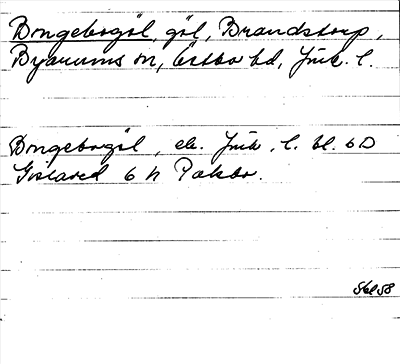 Bongebogöl, göl, Brandstorp,
Byarums sn, Östbo hd, Jönk. l.
Bongebogöl, ek. Jönk. l. bl. 6D
Gislaved 6 h Pakbo.